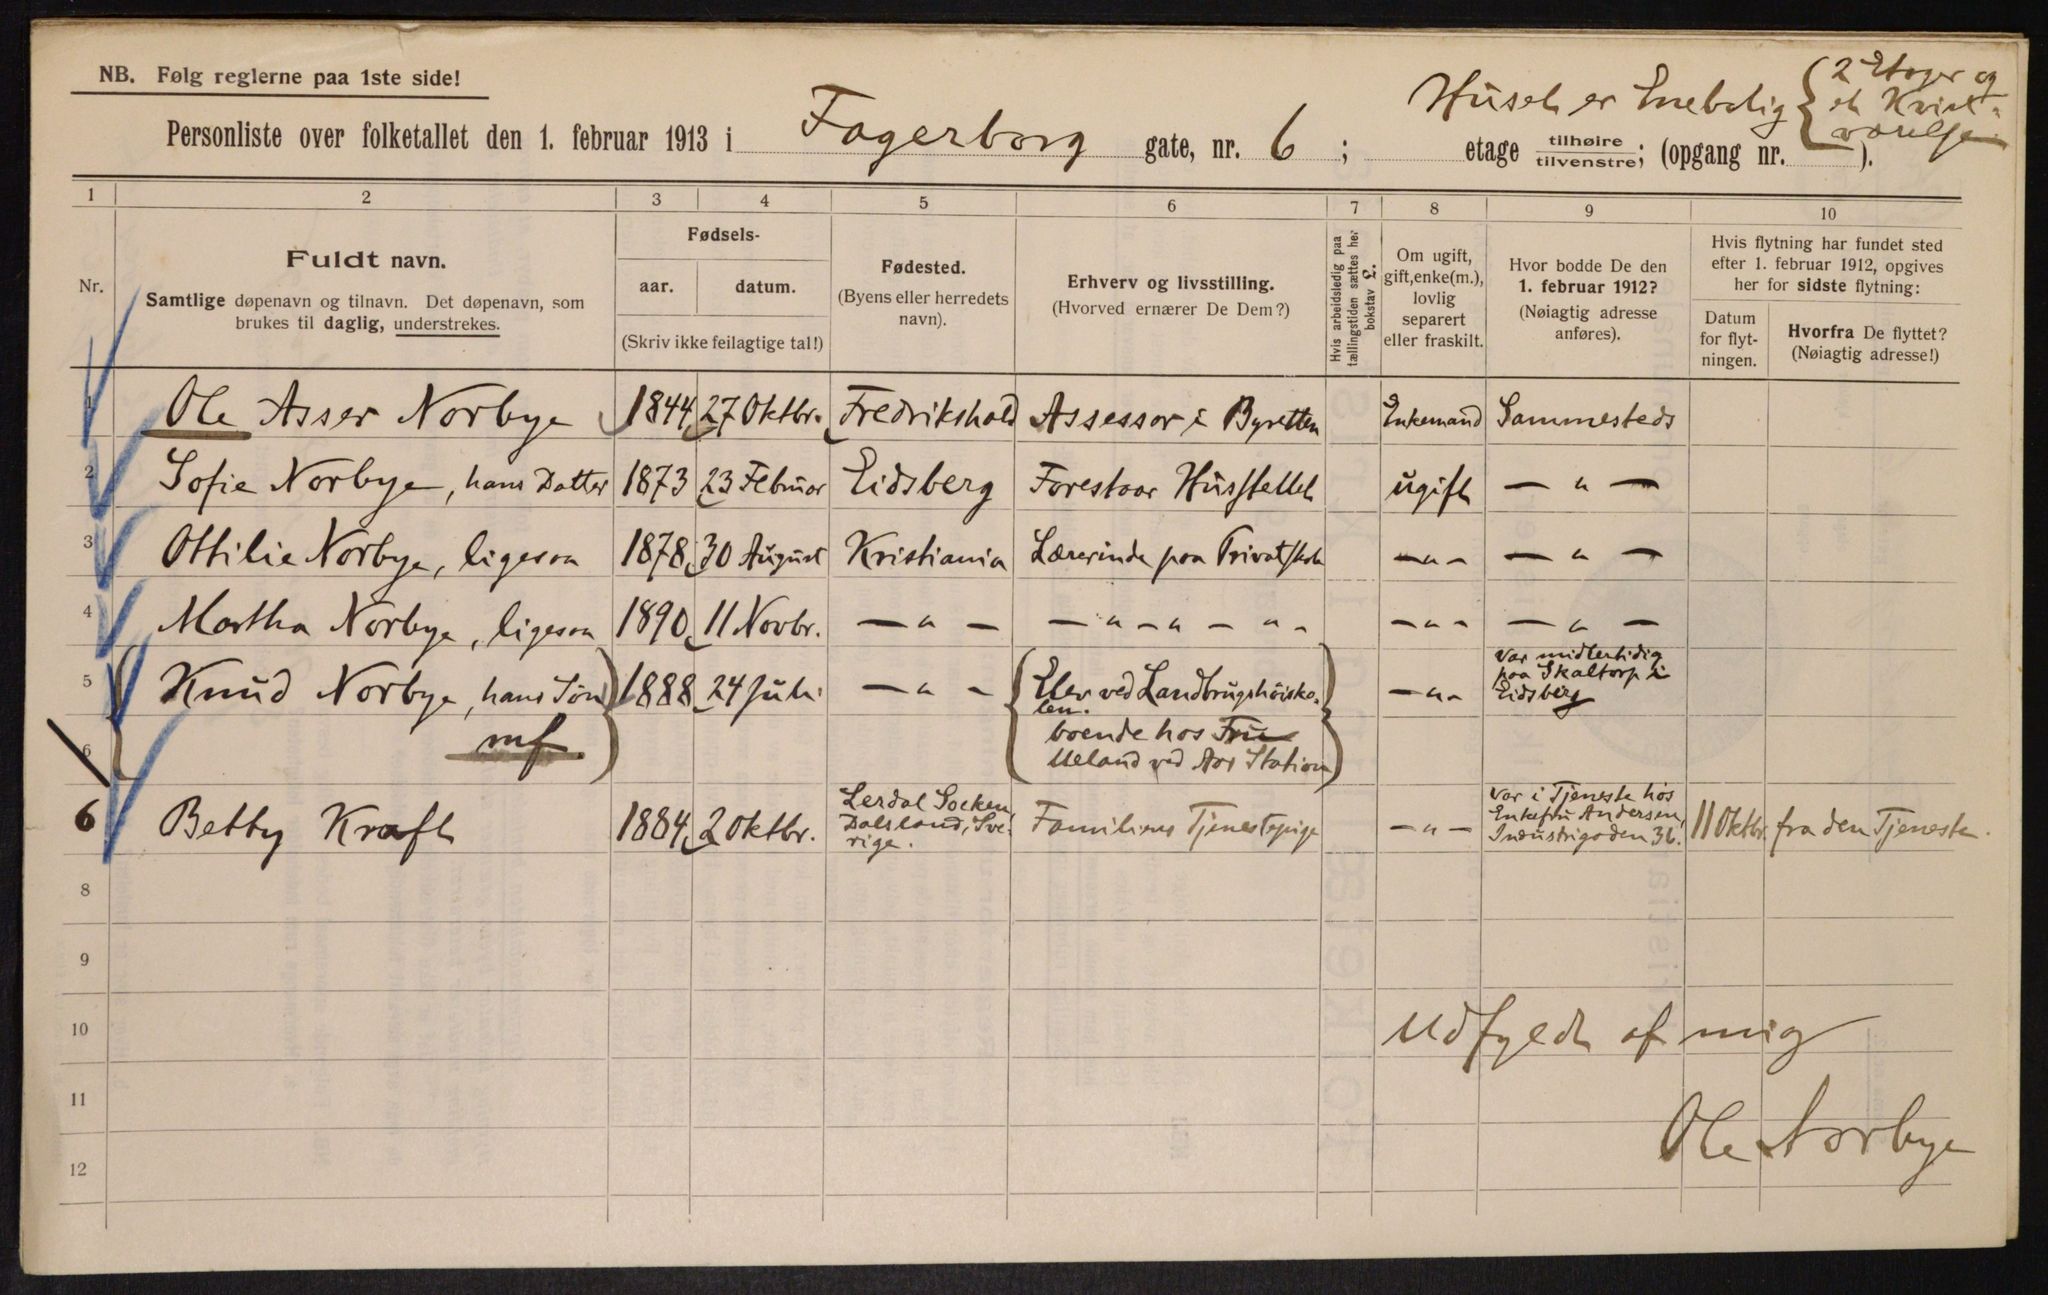 NB. Følg reglerne paa 1ste side!
Huset er Enebolig { 2 Etager og
et Kvist-
værelse.
Personliste over folketallet den 1. februar 1913 i Fagerborg gate, nr. 6 ; etage tilhøire
tilvenstre; (opgang nr. ).
1 2 3 4 5 6 7 8 9 10
Nr.
Fuldt navn.
Samtlige døpenavn og tilnavn. Det døpenavn, som
brukes til daglig, understrekes.
Fødsels-
aar. datum.
(Skriv ikke feilagtige tal!)
Fødested.
(Byens eller herredets
navn).
Erhverv og livsstilling.
(Hvorved ernærer De Dem?)
Hvis arbeidsledig paa
tællingstiden sættes her
bokstav L.
Om ugift,
gift, enke(m.),
lovlig
separert
eller fraskilt.
Hvor bodde De den
1. februar 1912?
(Nøiagtig adresse
anføres).
Hvis flytning har fundet sted
efter 1. februar 1912, opgives
her for sidste flytning:
Datum
for flyt-
ningen.
Hvorfra De flyttet?
(Nøiagtig adresse!)
1 Ole Asser Norbye 1844 27 Oktbr. Fredrikshald Assessor i Byretten Enkemand Sammesteds
2 Sofie Norbye, hans Datter 1873 23 Februar Eidsberg Forestaar Husstellet ugift — " —
3 Ottilie Norbye, ligesaa 1878 30 August Kristiania Lærerinde paa Privatskole — " — — " —
4 Martha Norbye, ligesaa 1890 11 Novbr. — " — — " — " — " — — " — — " —
5 Knud Norbye, hans Søn 1888 24 Juli — " — Elev ved Landbrugshöisko-
len.
— " — Var midlertidig
paa Skaltorp i
Eidsberg
6 mf boende hos Frue
Ueland ved Aas Station
6 Betty Kraft 1884 2 Oktbr. Lerdal Socken,
Dalsland, Sve-
rige.
Familiens Tjenestepige — " — Var i Tjeneste hos
Enkefru Andersen,
Industrigaden 36.
11 Oktbr. fra den Tjeneste.
8
9
10 Udfyldt af mig
11 Ole Norbye
12